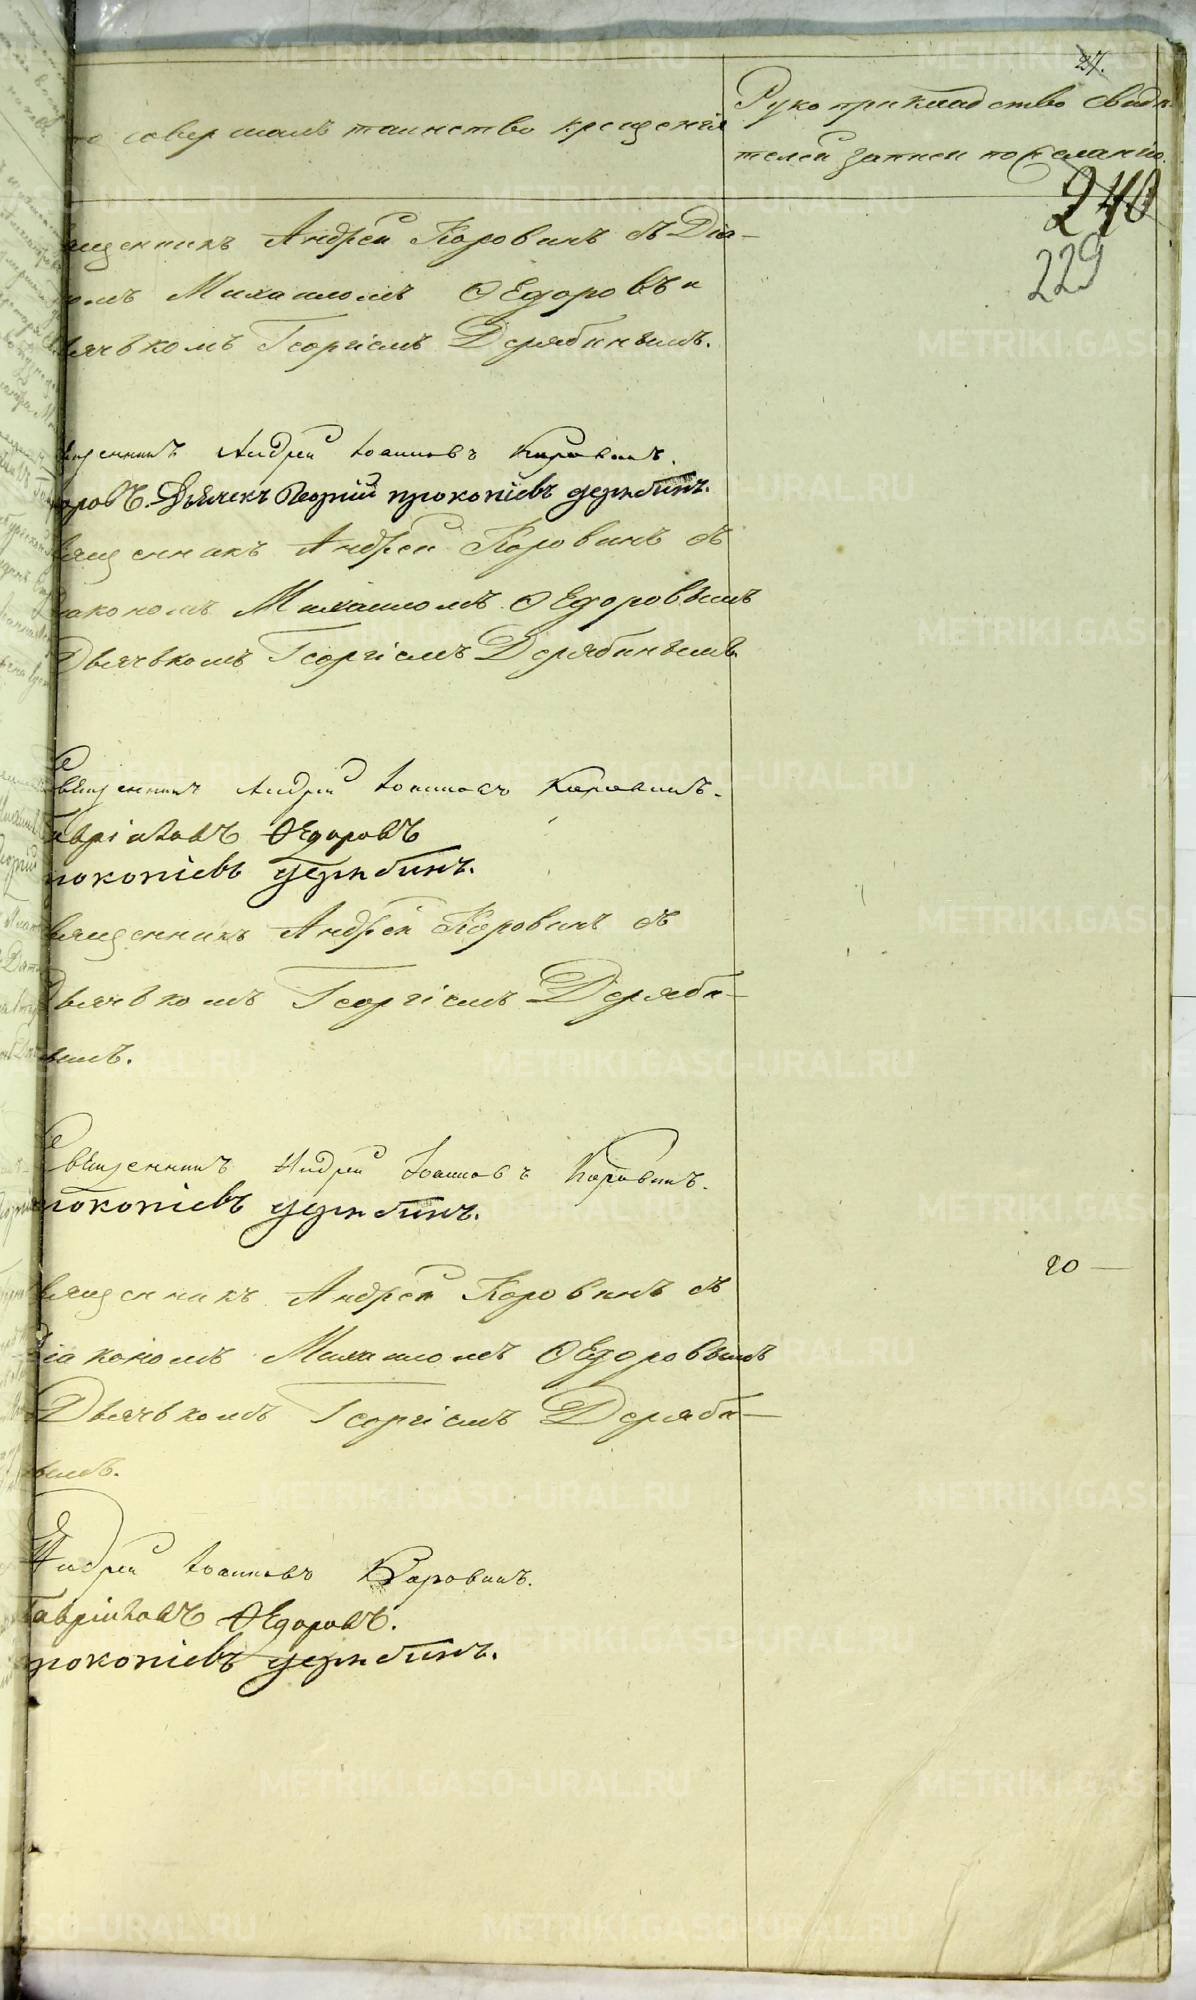 27.
то совершалъ таинство крещенія
Рукоприкладство свидѣ-
телей записи по желанію.
240
229
ященникъ Андрей Коровинъ съ Діа-
номъ Михаиломъ Ѳедоровы
ьячькомъ Георгіемъ Дерябинымъ.
вященникъ Андрей Іоанновъ Коровинъ.
доровъ. Дьячекъ Георгій прокопіевъ дерябинъ.
вященникъ Андрей Коровинъ съ
Діакономъ Михаиломъ Ѳедоровымъ
Дьячькомъ Георгіемъ Дерябинымъ
Священникъ Андрей Іоанновъ Коровинъ.
Гавріиловъ Ѳедоровъ
рокопіевъ дерябинъ.
вященникъ Андрей Коровинъ съ
Дьячькомъ Георгіемъ Деряби-
нымъ.
Священникъ Андрей Іоанновъ Коровинъ.
рокопіевъ дерябинъ.
20 —
вященникъ Андрей Коровинъ съ
Діакономъ Михаиломъ Ѳедоровымъ
Дьячькомъ Георгіемъ Деряби-
нымъ.
Андрей Іоанновъ Коровинъ.
Гавріиловъ Ѳедоровъ.
прокопіевъ дерябинъ.
METRIKI.GASO-URAL.RU